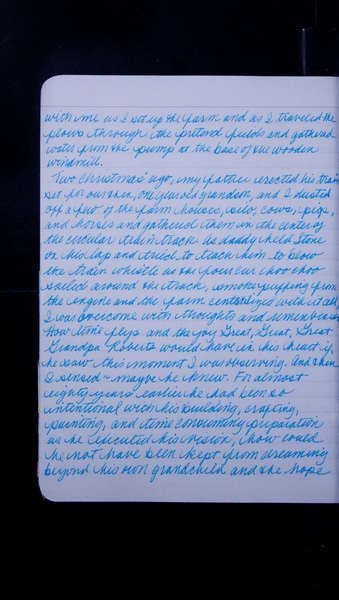 with me as I set up the farm and as I traveled the
plows through the pretend fields and gathered
water from the pump at the base of the wooden
windmill.
Two Christmas' ago, my father erected his train
set for our then, one year old grandson, and I dusted
off a few of the farm houses, silo, cows, pigs,
and horses and gathered them in the center of
the circular train track. As daddy held Stone
on his lap and tried to teach him to blow
the train whistle as the four car choo choo
sailed around the track, smoke puffing from
the engine and the farm centralized with it all,
I was overcome with thoughts and
How time flys and the joy Great, Great, Great
Grandpa Roberts would have in his heart if
he saw this moment I was observing. And then
I sensed ~ maybe he knew. For almost
eighty years earlier he had been so
intentional with his building, crafting,
painting, and time consuming preparation
as he executed his vision, how could
he not have been kept from dreaming
beyond his own grandchild and the hope